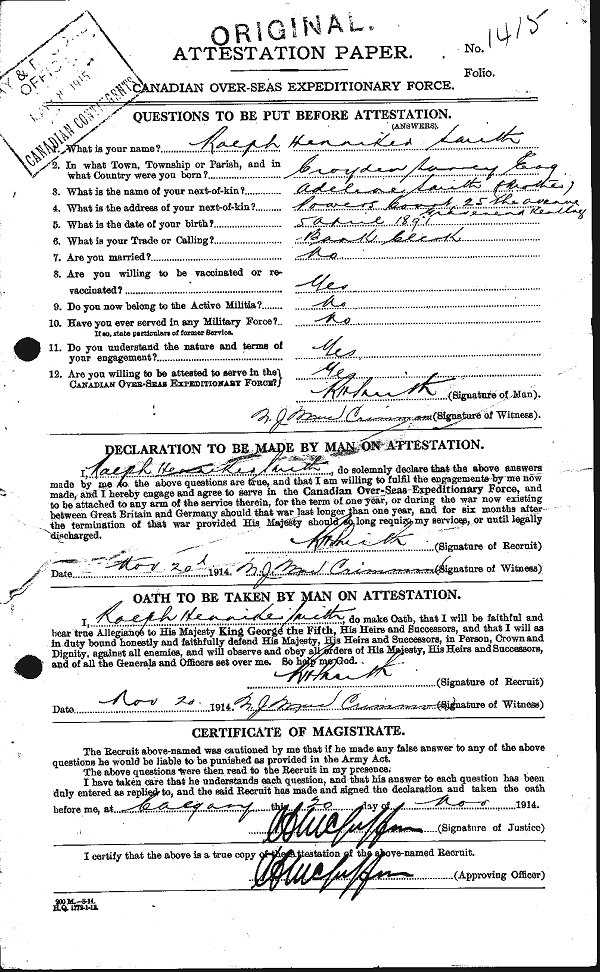 ORIGINAL.
ATTESTATION PAPER.
No. 1415
Folio.
CANADIAN OVER-SEAS EXPEDITIONARY FORCE.
OFFICE
1915
CANADIAN CONTINGENTS
QUESTIONS TO BE PUT BEFORE ATTESTATION.
(ANSWERS).
1. What is your name? Ralph Henniker Smith
2. In what Town, Township or Parish, and in
what Country were you born? Croydon Surrey Eng
3. What is the name of your next-of-kin? Adelene Smith (Mother)
4. What is the address of your next-of-kin? Court, 25 the avenue
Gravesend
5. What is the date of your birth? 5 April 1891
6. What is your Trade or Calling? Bank Clerk
7. Are you married? No
8. Are you willing to be vaccinated or re-
vaccinated? Yes
9. Do you now belong to the Active Militia? No
10. Have you ever served in any Military Force? No
If so, state particulars of former Service.
11. Do you understand the nature and terms of
your engagement? Yes
12. Are you willing to be attested to serve in the
CANADIAN OVER-SEAS EXPEDITIONARY FORCE? Yes
RHSmith (Signature of Man).
(Signature of Witness).
DECLARATION TO BE MADE BY MAN ON ATTESTATION.
I, Ralph Henniker Smith, do solemnly declare that the above answers
made by me to the above questions are true, and that I am willing to fulfil the engagements by me now
made, and I hereby engage and agree to serve in the Canadian Over-Seas Expeditionary Force, and
to be attached to any arm of the service therein, for the term of one year, or during the war now existing
between Great Britain and Germany should that war last longer than one year, and for six months after
the termination of that war provided His Majesty should so long require my services, or until legally
discharged.
RHSmith (Signature of Recruit)
Date Nov 20d 1914. (Signature of Witness)
OATH TO BE TAKEN BY MAN ON ATTESTATION.
I, Ralph Henniker Smith, do make Oath, that I will be faithful and
bear true Allegiance to His Majesty King George the Fifth, His Heirs and Successors, and that I will as
in duty bound honestly and faithfully defend His Majesty, His Heirs and Successors, in Person, Crown and
Dignity, against all enemies, and will observe and obey all orders of His Majesty, His Heirs and Successors,
and of all the Generals and Officers set over me. So help me God.
RHSmith (Signature of Recruit)
Date Nov 20. 1914. (Signature of Witness)
CERTIFICATE OF MAGISTRATE.
The Recruit above-named was cautioned by me that if he made any false answer to any of the above
questions he would be liable to be punished as provided in the Army Act.
The above questions were then read to the Recruit in my presence.
I have taken care that he understands each question, and that his answer to each question has been
duly entered as replied to, and the said Recruit has made and signed the declaration and taken the oath
before me, at Calgary this 20 day of Nov 1914.
(Signature of Justice)
I certify that the above is a true copy of the Attestation of the above-named Recruit.
(Approving Officer)
200 M.—8-14.
H.Q. 1772-1-13.